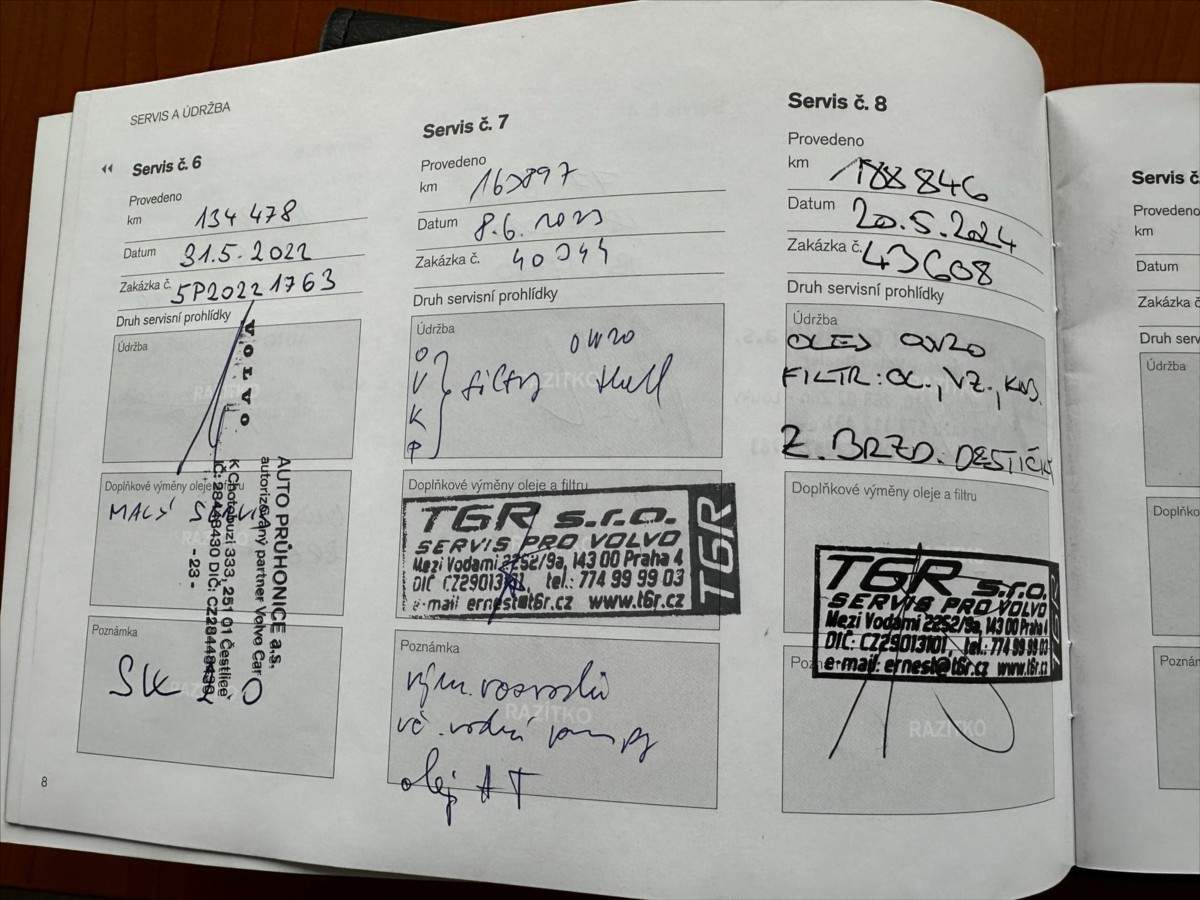 SERVIS A ÚDRŽBA
Servis č. 6
Provedeno
km 134 478
Datum 31.5.2022
Zakázka č. SP2022 1763
Druh servisní prohlídky
Údržba
VOLVO
AUTO PRŮHONICE a.s.
autorizovaný partner Volvo Car
K Chotobuzi 333, 251 01 Čestlice
IČ: 28448430 DIČ: CZ28448430
- 23 -
Doplňkové výměny oleje a filtru
MALÝ
Poznámka
SK
8
Servis č. 7
Provedeno
km 163897
Datum 8.6.2023
Zakázka č. 40344
Druh servisní prohlídky
Údržba
0W20
O
V
K
P
filtry Shell
RAZÍTKO
Doplňkové výměny oleje a filtru
T6R s.r.o.
SERVIS PRO VOLVO
Mezi Vodami 2252/9a, 143 00 Praha 4
DIČ CZ29013101, tel.: 774 99 99 03
e-mail ernest@t6r.cz www.t6r.cz
T6R
Poznámka
vým. rozvodů
vč. vodní pumpy
RAZÍTKO
olej AT
Servis č. 8
Provedeno
km 188846
Datum 20.5.2024
Zakázka č. 43608
Druh servisní prohlídky
Údržba
OLEJ 0W20
FILTR: OL., VZ., KAB.
Z. BRZD. DESTIČKY
Doplňkové výměny oleje a filtru
T6R s.r.o.
SERVIS PRO VOLVO
Mezi Vodami 2252/9a, 143 00 Praha 4
DIČ: CZ29013101, tel.: 774 99 99 03
e-mail: ernest@t6r.cz www.t6r.cz
RAZÍTKO
Servis č.
Provedeno
km
Datum
Zakázka č.
Druh servisn
Údržba
Doplňko
Poznám